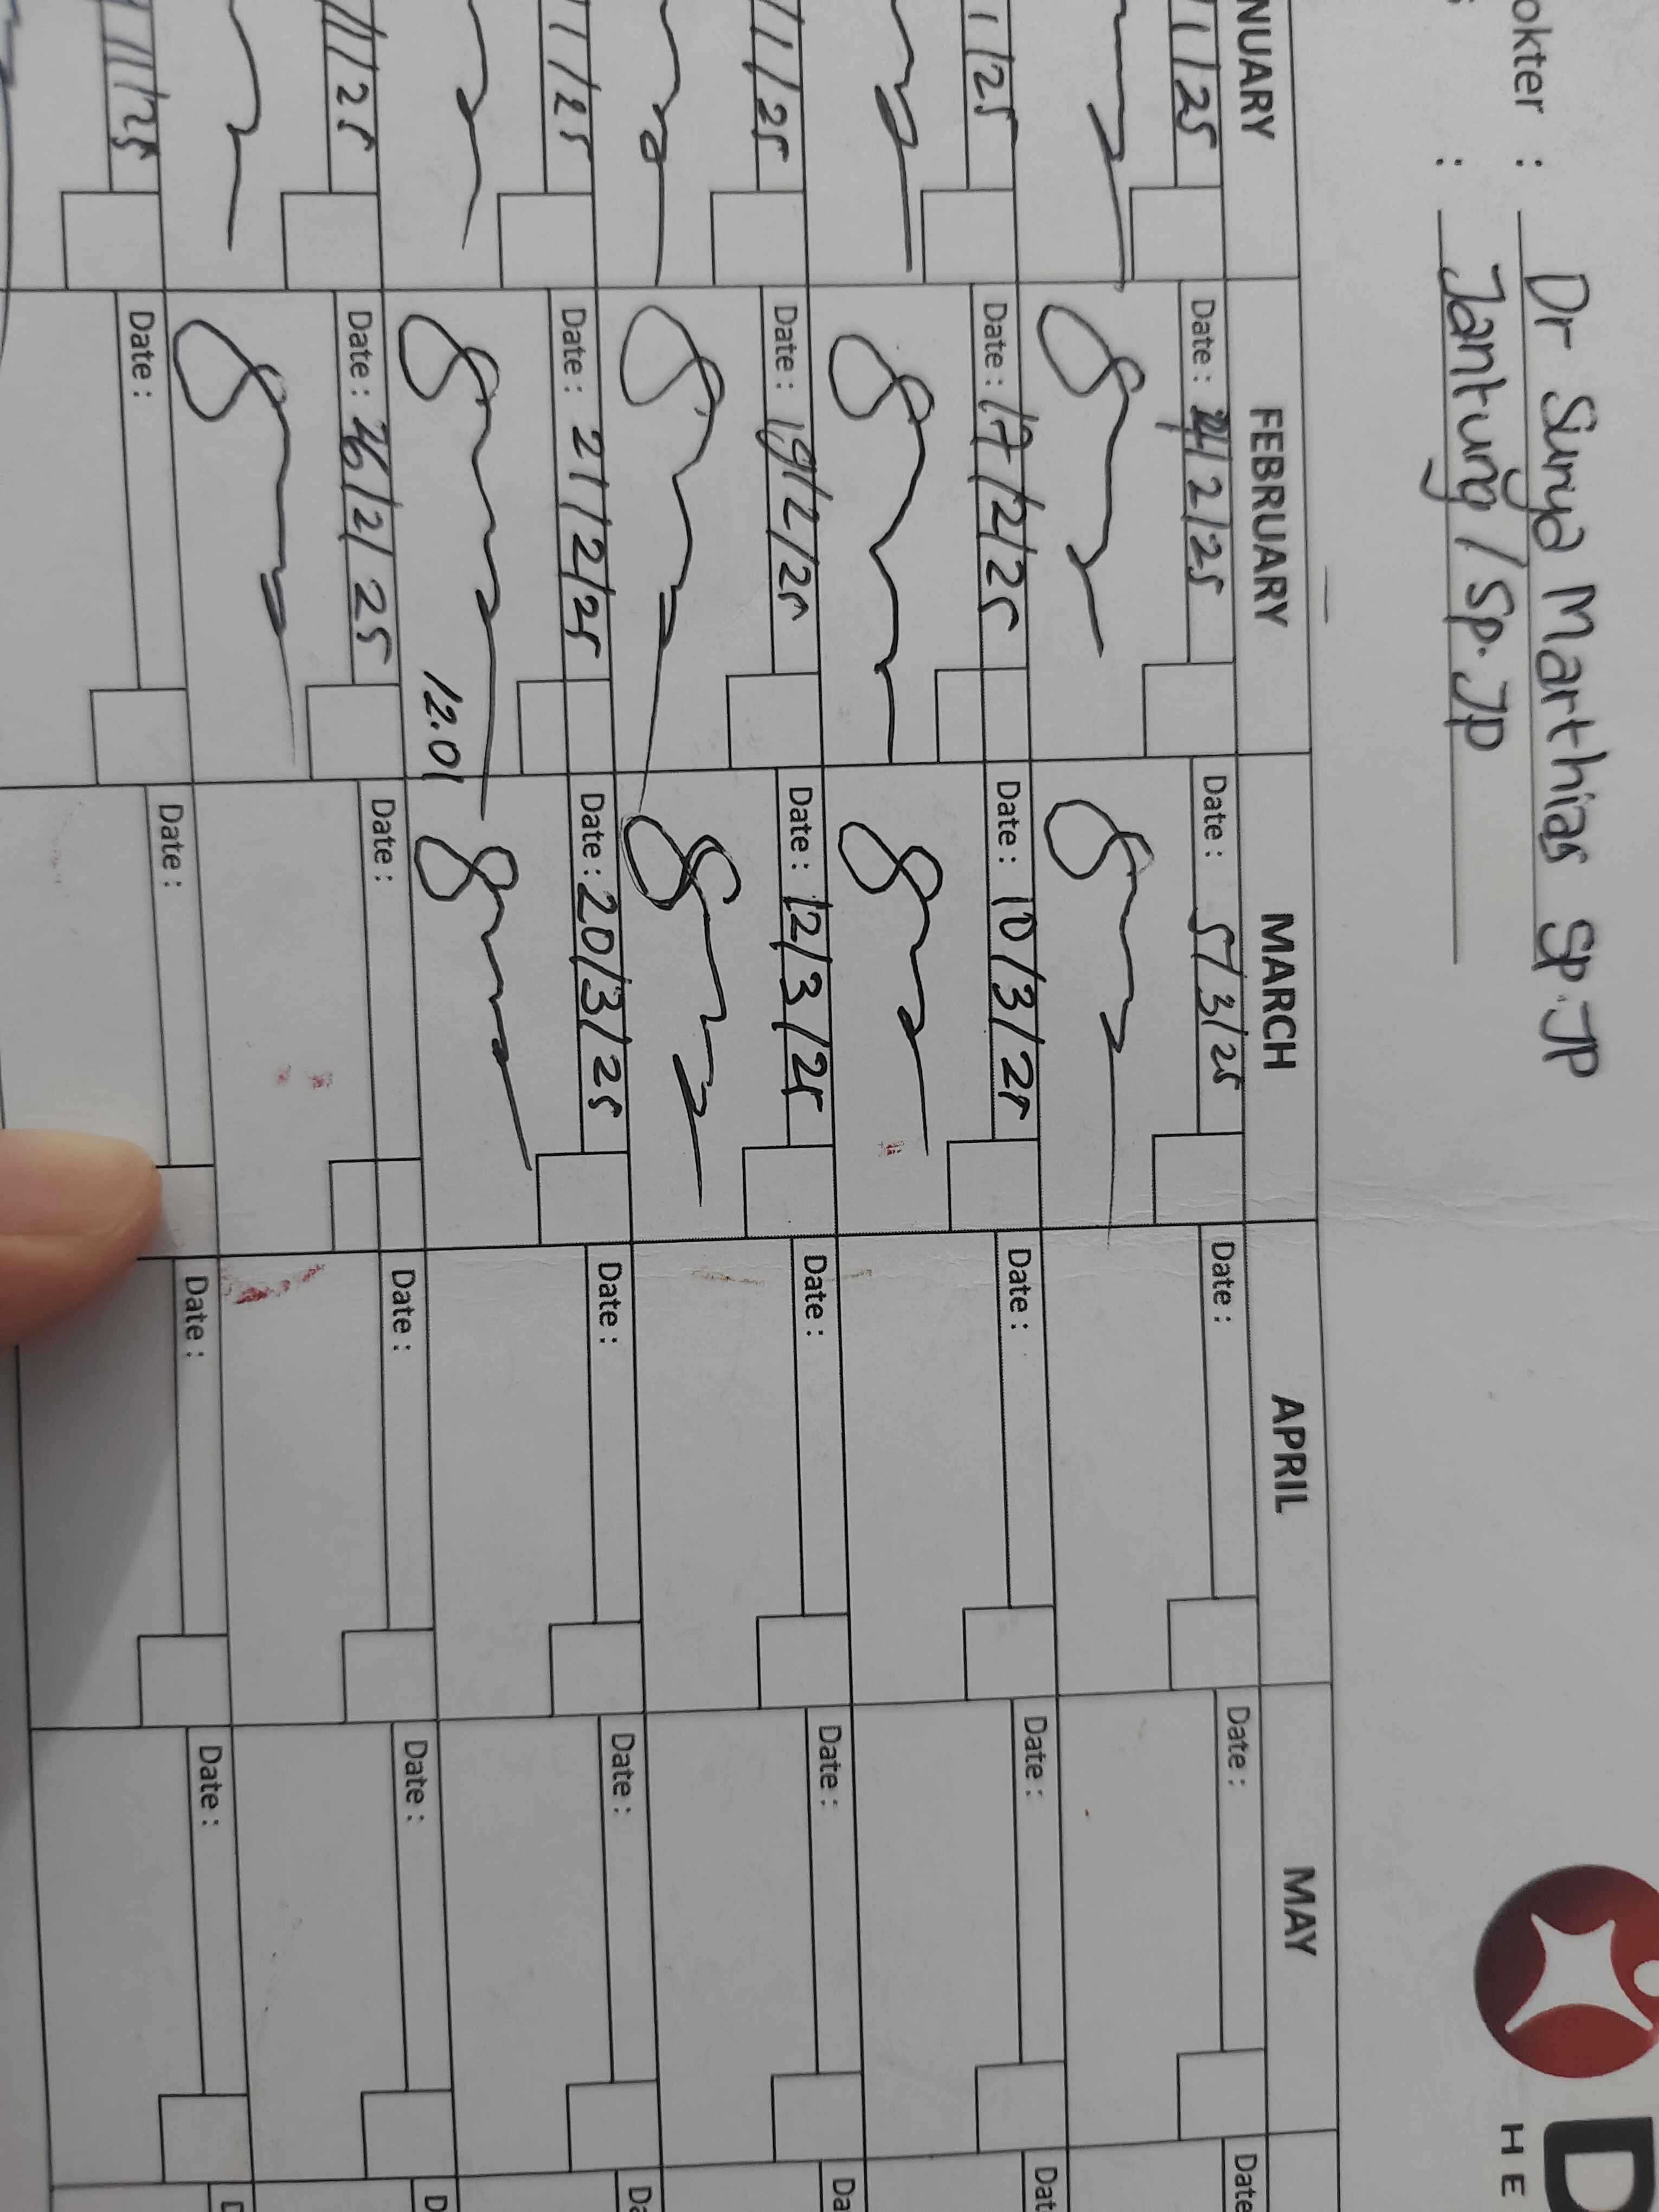 okter : Dr Surya Marthias Sp.JP
: Jantung / Sp.JP
NUARY FEBRUARY MARCH APRIL MAY
1/25 Date: /2/25 Date: 5/3/25 Date: Date: Date
1/25 Date: 17/2/25 Date: 10/3/25 Date: Date: Dat
1/25 Date: 19/2/25 Date: 12/3/25 Date: Date: Da
1/25 Date: 21/2/25 Date: 20/3/25 Date: Date: Da
12.01
1/25 Date: 26/2/25 Date: Date: Date: D
1/25 Date: Date: Date: Date: D
D
HE